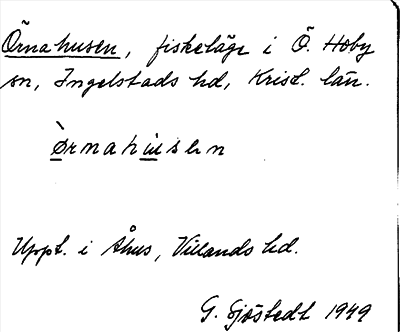 Örnahusen, fiskeläge i Ö. Hoby
sn, Ingelstads hd, Krist. län.
Ø̀rnahusen
Uppt. i Åhus, Villands hd.
G. Sjöstedt 1949